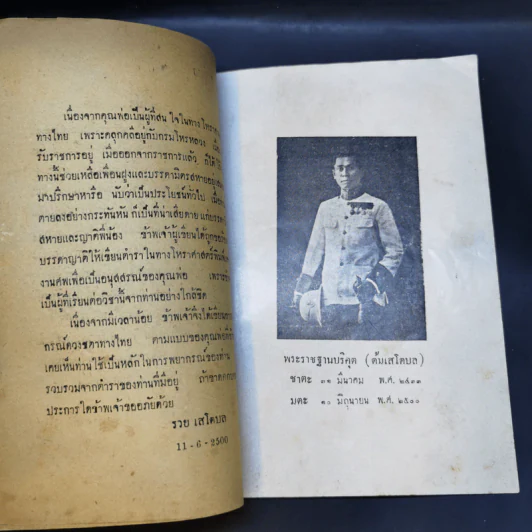 เนื่องจากคุณพ่อเป็นผู้ที่สนใจในทางโหรา
ทางไทย เพราะคลุกคลีอยู่กับกรมโหรหลวง
รับราชการอยู่ เมื่อออกจากราชการแล้ว ก็ได้
ทางนี้ช่วยเหลือเพื่อนฝูงและบรรดามิตรสหายอยู่
มาปรึกษาหารือ นับว่าเป็นประโยชน์ทั่วไป
ตายลงอย่างกระทันหัน ก็เป็นที่น่าเสียดาย แก่บรรดา
สหายและญาติพี่น้อง ข้าพเจ้าผู้เขียนได้ถูกขอ
บรรดาญาติให้เขียนตำราในทางโหราศาสตร์พิมพ์
งานศพเพื่อเป็นอนุสสรณ์ของคุณพ่อ เพราะ
เป็นผู้ที่เรียนต่อวิชานี้จากท่านอย่างใกล้ชิด
เนื่องจากมีเวลาน้อย ข้าพเจ้าจึงได้เขียน
กรณ์ดวงชาตาไทย ตามแบบของคุณพ่อที่
เคยเห็นท่านใช้เป็นหลักในการพยากรณ์ของท่าน
รวบรวมจากตำราของท่านที่มีอยู่ ถ้าขาดตก
ประการใดข้าพเจ้าขออภัยด้วย
รวย เสโตบล
11-6-2500
พระราชฐานบริคุต (ต้มเสโตบล)
ชาตะ ๓๑ มีนาคม พ.ศ. ๒๔๓๓
มตะ ๑๐ มิถุนายน พ.ศ. ๒๕๐๐